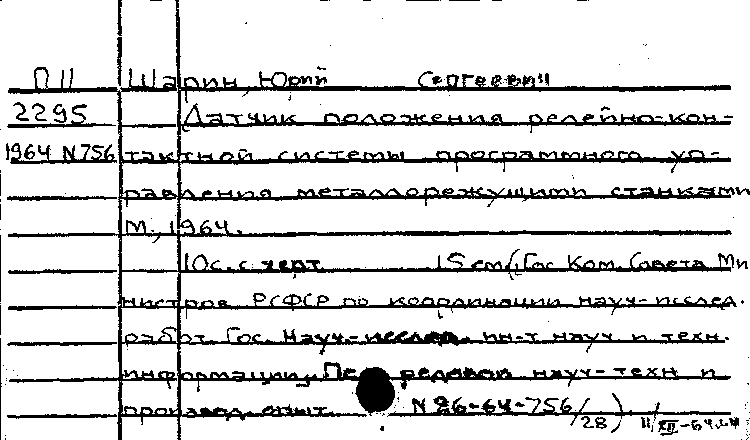 П11 Шарин, Юрий Сергеевич
2295 Датчик положения релейно-кон-
1964 N756 тактной системы программного уп-
равления металлорежущими станками
М., 1964.
10с. с черт. 15 см (Гос Ком. Совета Ми
нистров РСФСР по координации науч-исслед.
работ. Гос. Науч-исслед. ин-т науч и техн.
информации. Передовой науч-техн и
производ. опыт. N 26-64-756/28)